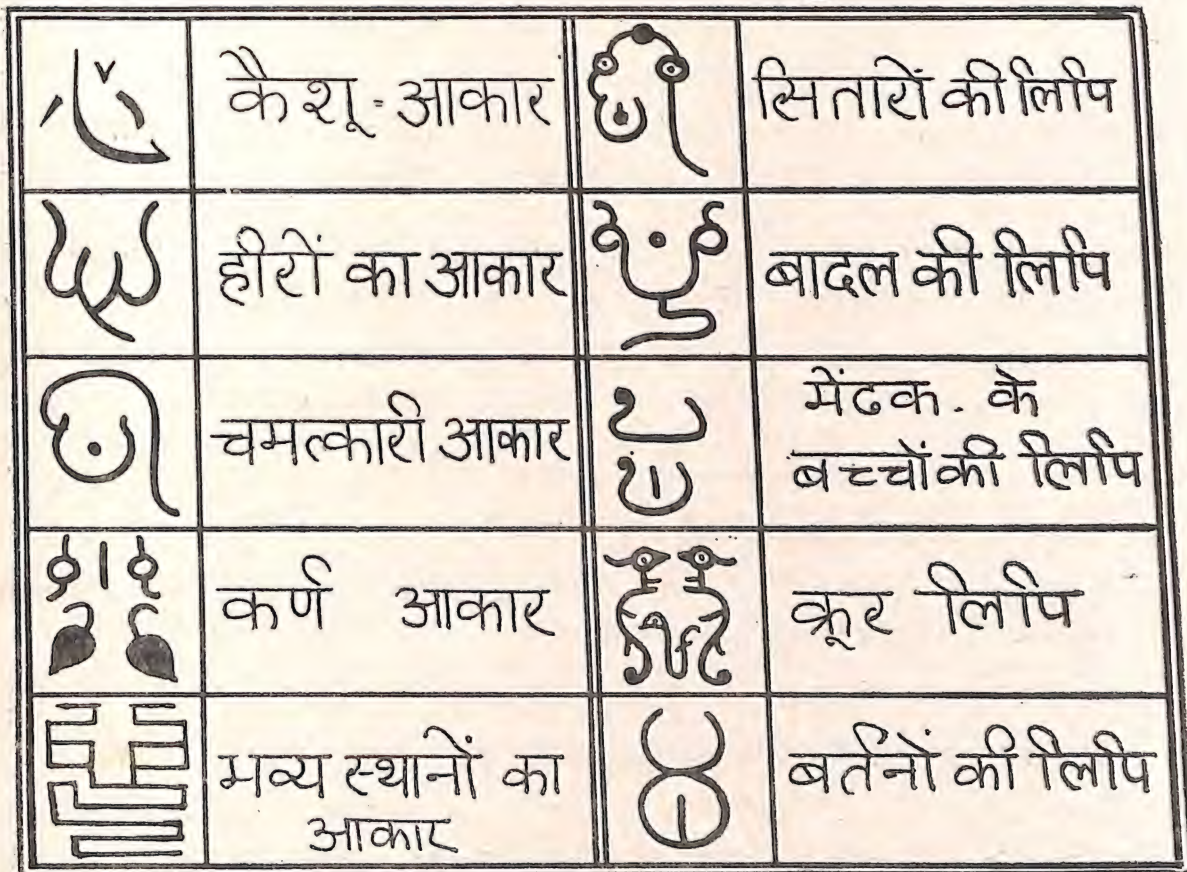 कैशू - आकार
सितारों की लिपि
हीरों का आकार
बादल की लिपि
चमत्कारी आकार
मेंढक. के
बच्चों की लिपि
कर्ण आकार
क्रूर लिपि
भव्य स्थानों का
आकार
बर्तनों की लिपि